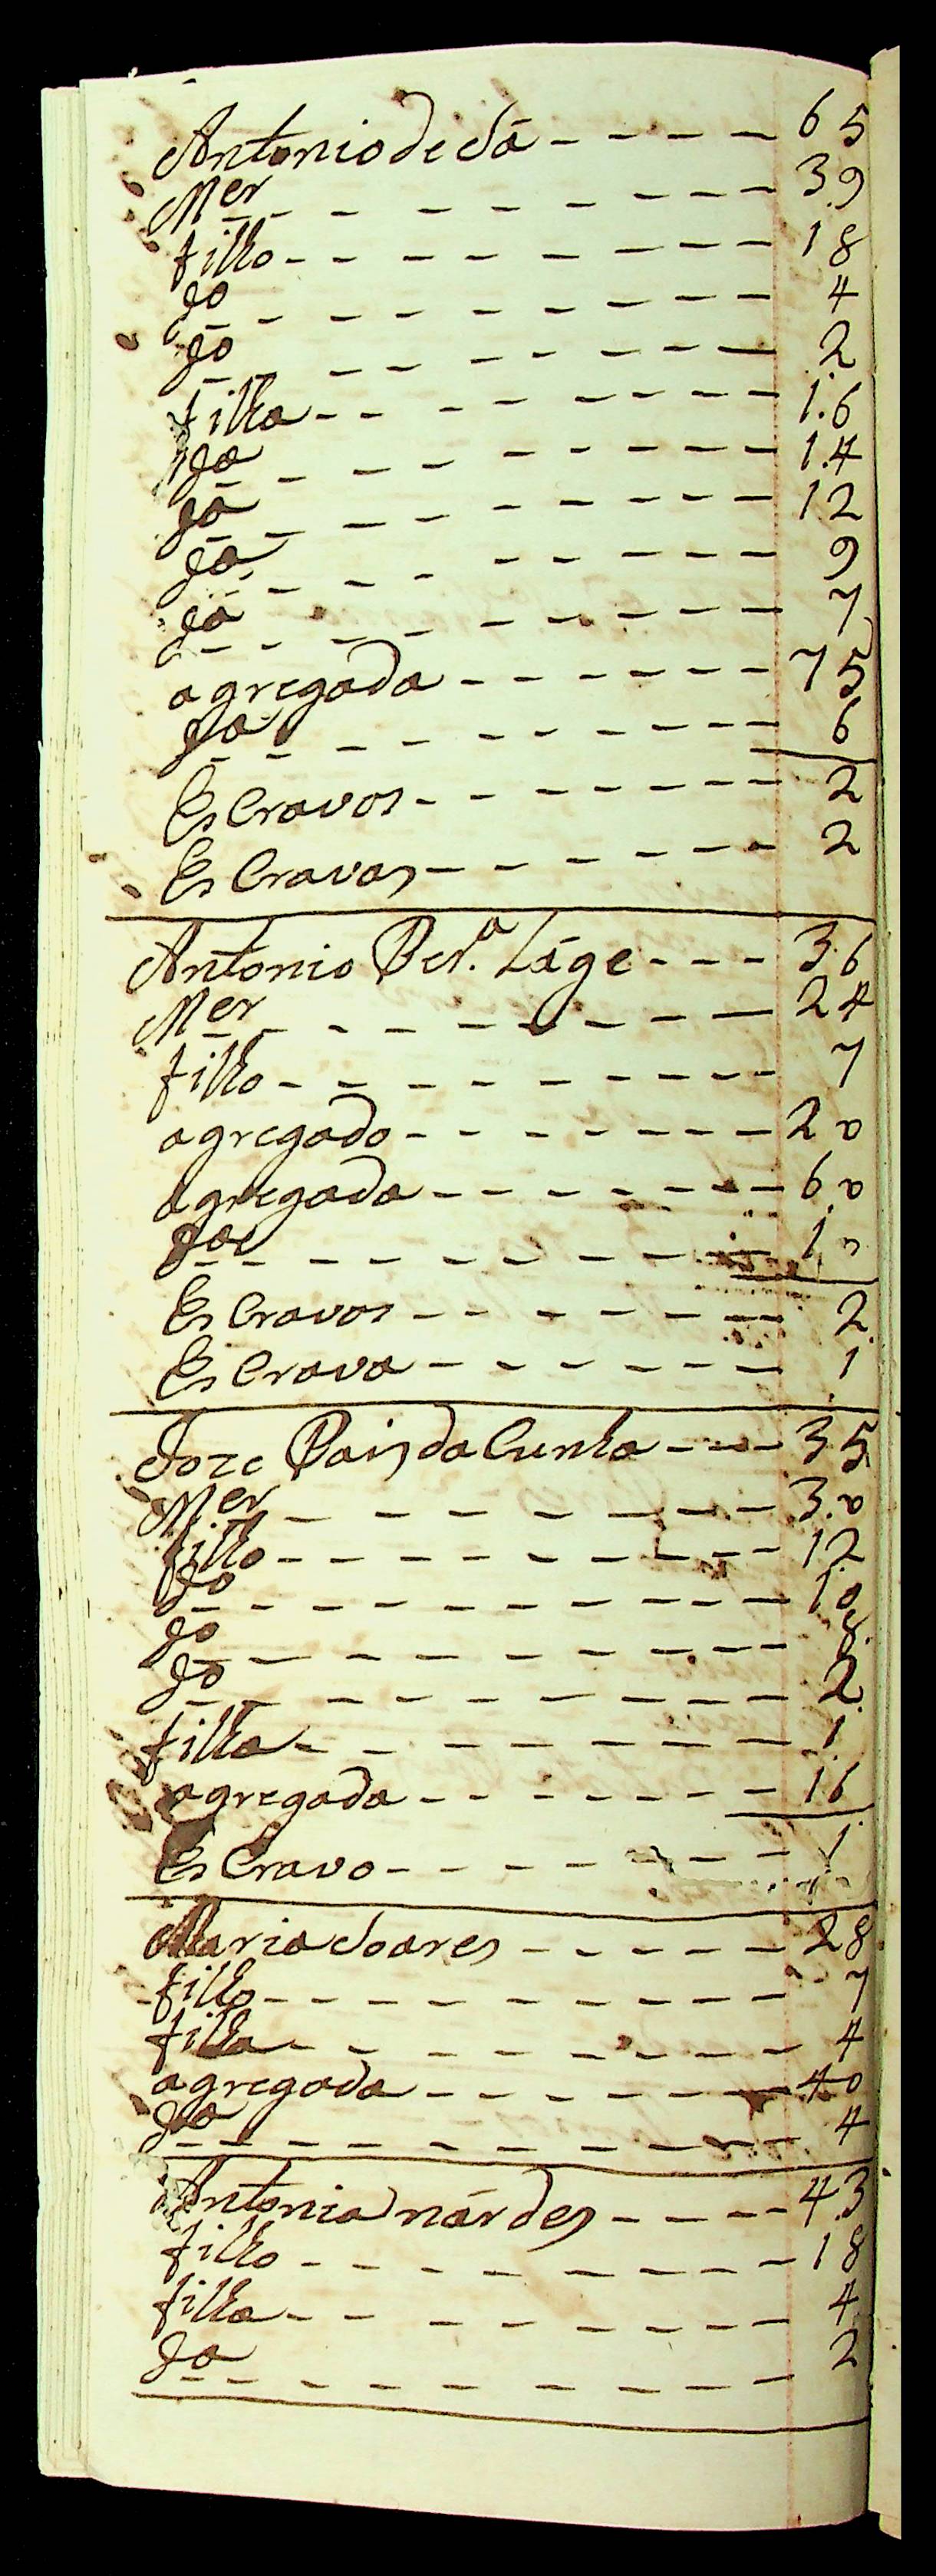 Antonio de Sá - - - - - 65
Mer - - - - - - - - - 39
filho - - - - - - - - - 18
do - - - - - - - - - 4
do - - - - - - - - - 2
filha - - - - - - - - - 16
da - - - - - - - - - 14
da - - - - - - - - - 12
da - - - - - - - - - 9
da - - - - - - - - - 7
agregada - - - - - - 75
da - - - - - - - - - 6
EsCravos - - - - - - - 2
EsCravas - - - - - - - 2
Antonio Per.ª Láge - - - 36
Mer - - - - - - - - - 24
filho - - - - - - - - - 7
agregado - - - - - - - 20
agregada - - - - - - - 60
da - - - - - - - - - 10
EsCravos - - - - - - - 2
EsCrava - - - - - - - 1
Joze Pais da Cunha - - - 35
Mer - - - - - - - - - 30
filho - - - - - - - - - 12
do - - - - - - - - - 10
do - - - - - - - - - 8
do - - - - - - - - - 2
filha - - - - - - - - - 1
agregada - - - - - - - 16
EsCravo - - - - - - - 1
Maria Soares - - - - - 28
filho - - - - - - - - - 7
filha - - - - - - - - - 4
agregada - - - - - - - 40
da - - - - - - - - - 4
Antonia nárdes - - - - 43
filho - - - - - - - - - 18
filha - - - - - - - - - 4
da - - - - - - - - - 2